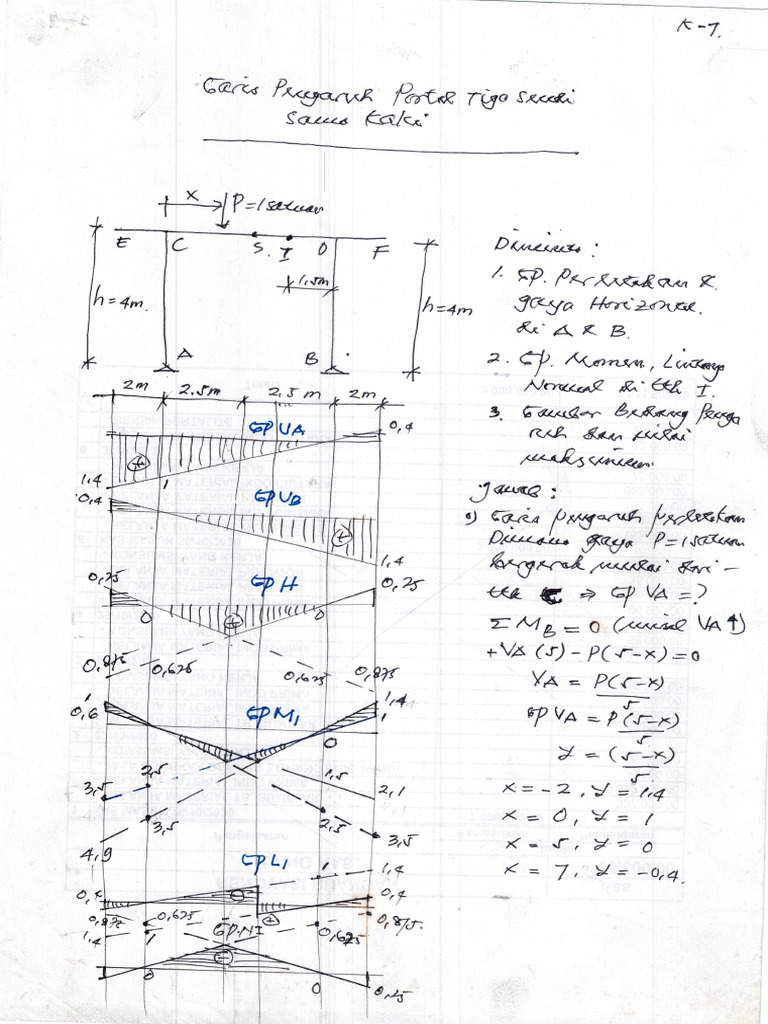 K-7.
Garis Pengaruh Portal Tiga Sendi
Sama Kaki
x
P=1satuan
E
C
S.
I
D
F
1,5m
h=4m.
h=4m
A
B
2m
2,5m
2,5m
2m
GP VA
0,4
+
1,4
1
0,4
GP VB
+
1,4
0,25
GP H
0,25
0
+
0
0,875
0,625
0,625
0,875
1
0,6
GP MI
1,4
1
0
3,5
2,5
1,5
2,1
3,5
2,5
3,5
4,9
GP LI
1
1,4
0,4
0,4
0,875
0,625
+
0,875.
1,4
1
GP.NI
0,625
0
0
0,25
Diminta:
1. GP. Perletakan &
gaya Horizontal
di A & B.
2. GP. Momen, Lintang
Normal di ttk I.
3. Gambar Bidang Penga
ruh dan nilai
maksimum.
Jawab:
a) Garis pengaruh perletakan
Dimana gaya P=1satuan
bergerak mulai dari -
ttk E ⇒ GP VA = ?
Σ MB = 0 (misal VA ↑)
+VA (5) - P(5-x) = 0
VA = P(5-x)
5
GP VA = P(5-x)
5
y = (5-x)
5
x = -2, y = 1,4
x = 0, y = 1
x = 5, y = 0
x = 7, y = -0,4.